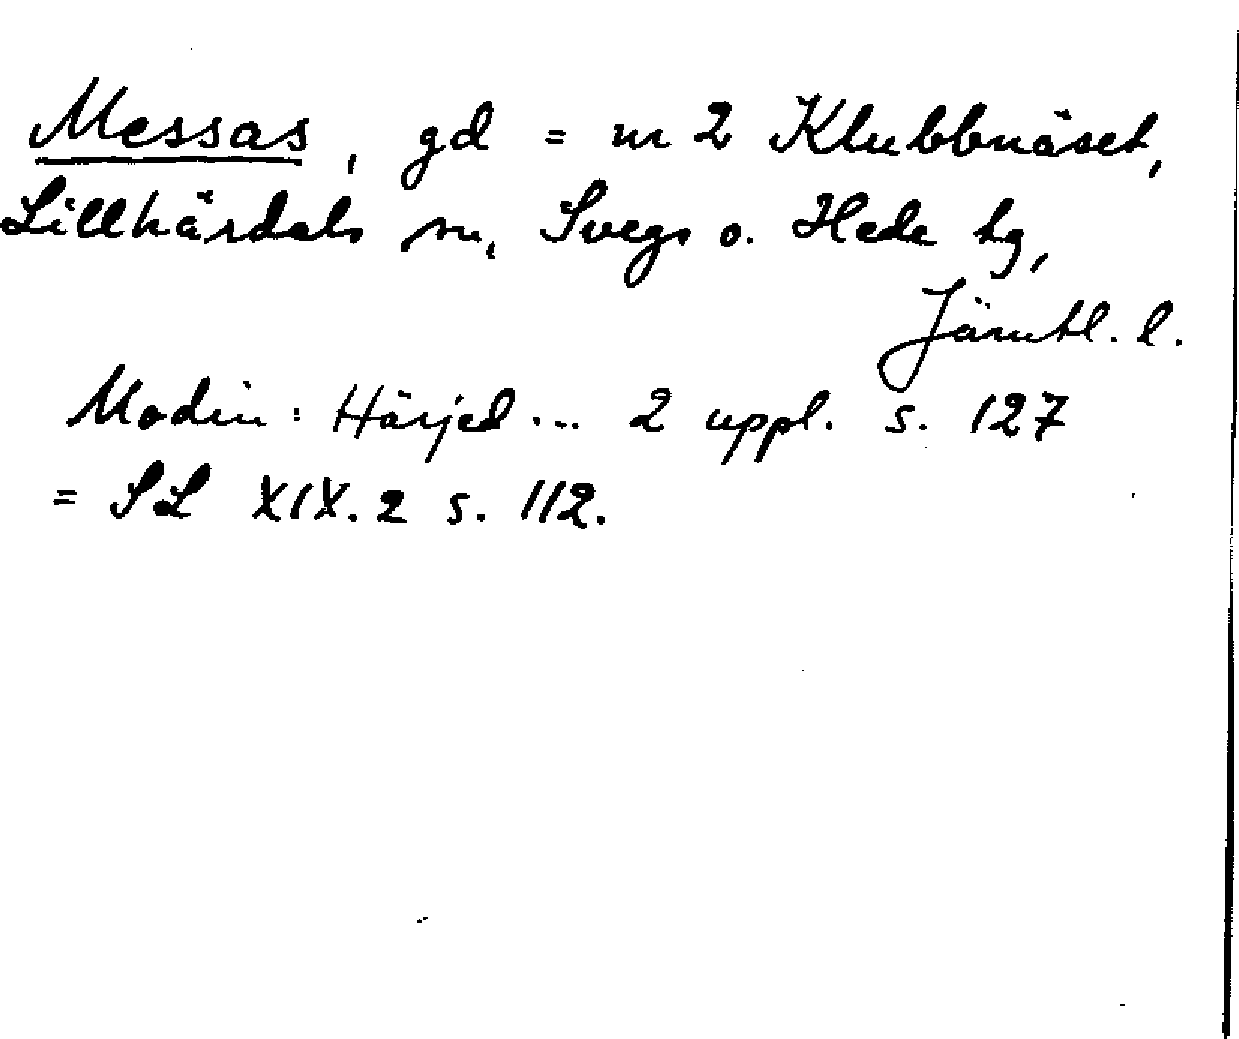 Messas, gd = nr 2 Klubbnäset,
Lillhärdals sn, Svegs o. Hede tg,
Jämtl. l.
Modin: Härjed... 2 uppl. s. 127
= SL XIX. 2 s. 112.